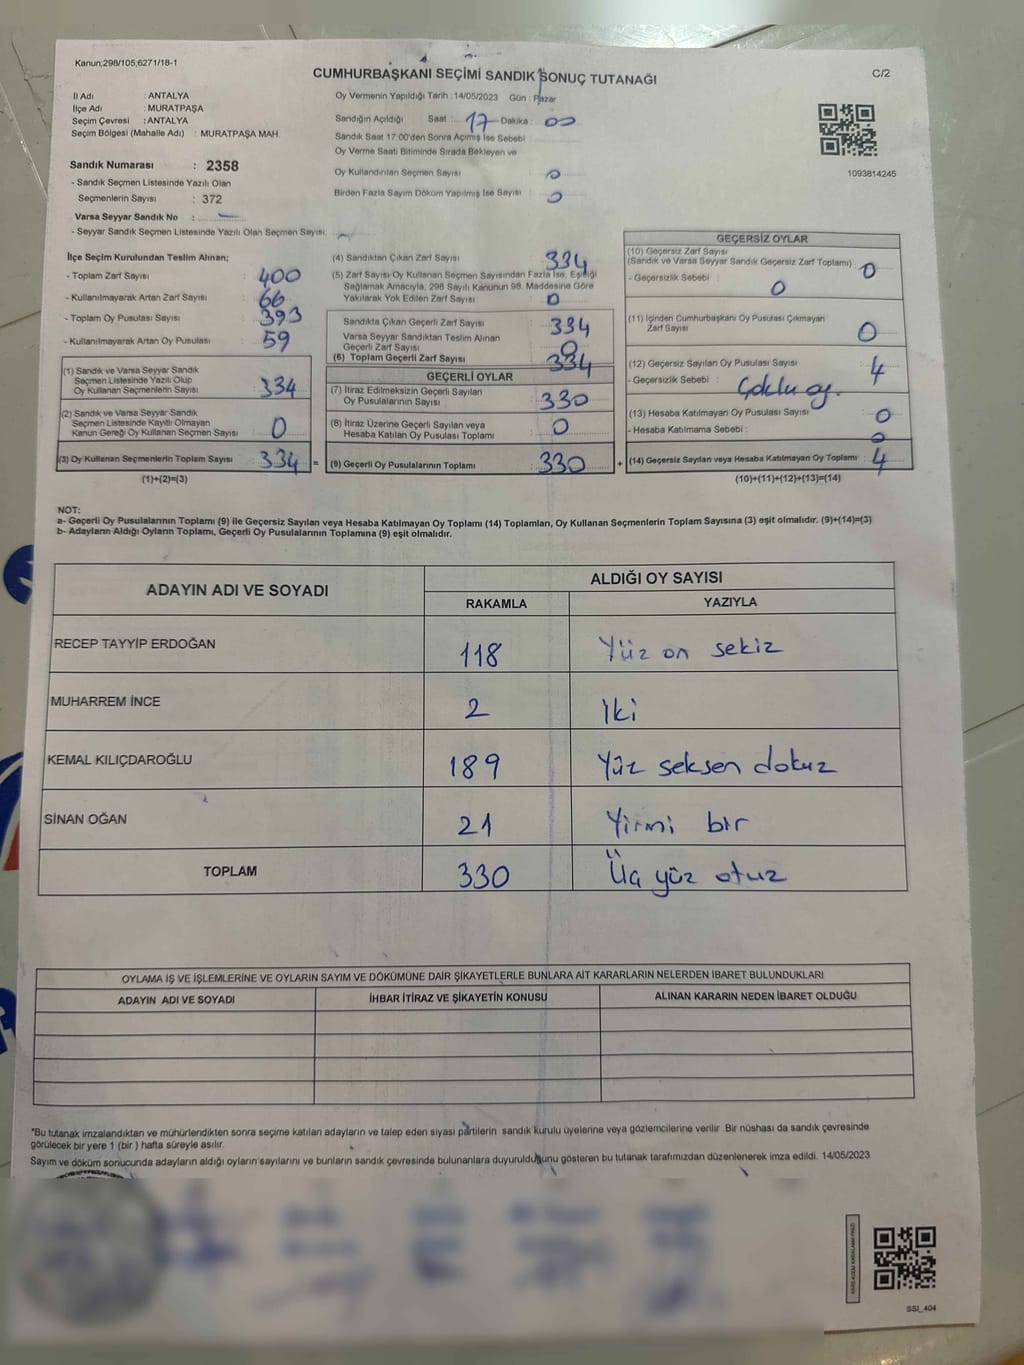 Kanun;298/105,6271/18-1
CUMHURBAŞKANI SEÇİMİ SANDIK SONUÇ TUTANAĞI
C/2
İl Adı : ANTALYA
İlçe Adı : MURATPAŞA
Seçim Çevresi : ANTALYA
Seçim Bölgesi (Mahalle Adı) : MURATPAŞA MAH.
Sandık Numarası : 2358
- Sandık Seçmen Listesinde Yazılı Olan
Seçmenlerin Sayısı : 372
Varsa Seyyar Sandık No : —
- Seyyar Sandık Seçmen Listesinde Yazılı Olan Seçmen Sayısı:
Oy Vermenin Yapıldığı Tarih : 14/05/2023 Gün : Pazar
Sandığın Açıldığı Saat : 17 Dakika : 00
Sandık Saat 17:00'den Sonra Açılmış İse Sebebi :
Oy Verme Saati Bitiminde Sırada Bekleyen ve
Oy Kullandırılan Seçmen Sayısı : 0
Birden Fazla Sayım Döküm Yapılmış İse Sayısı : 0
1093814245
İlçe Seçim Kurulundan Teslim Alınan;
- Toplam Zarf Sayısı : 400
- Kullanılmayarak Artan Zarf Sayısı : 66
- Toplam Oy Pusulası Sayısı : 393
- Kullanılmayarak Artan Oy Pusulası : 59
(1) Sandık ve Varsa Seyyar Sandık
Seçmen Listesinde Yazılı Olup
Oy Kullanan Seçmenlerin Sayısı : 334
(2) Sandık ve Varsa Seyyar Sandık
Seçmen Listesinde Kayıtlı Olmayan
Kanun Gereği Oy Kullanan Seçmen Sayısı : 0
(3) Oy Kullanan Seçmenlerin Toplam Sayısı : 334 =
(1)+(2)=(3)
(4) Sandıktan Çıkan Zarf Sayısı : 334
(5) Zarf Sayısı Oy Kullanan Seçmen Sayısından Fazla İse, Eşitliği
Sağlamak Amacıyla, 298 Sayılı Kanunun 98. Maddesine Göre
Yakılarak Yok Edilen Zarf Sayısı : 0
Sandıkta Çıkan Geçerli Zarf Sayısı : 334
Varsa Seyyar Sandıktan Teslim Alınan
Geçerli Zarf Sayısı : 0
(6) Toplam Geçerli Zarf Sayısı : 334
GEÇERLİ OYLAR
(7) İtiraz Edilmeksizin Geçerli Sayılan
Oy Pusulalarının Sayısı : 330
(8) İtiraz Üzerine Geçerli Sayılan veya
Hesaba Katılan Oy Pusulası Toplamı : 0
(9) Geçerli Oy Pusulalarının Toplamı : 330 +
GEÇERSİZ OYLAR
(10) Geçersiz Zarf Sayısı
(Sandık ve Varsa Seyyar Sandık Geçersiz Zarf Toplamı) : 0
- Geçersizlik Sebebi :
0
(11) İçinden Cumhurbaşkanı Oy Pusulası Çıkmayan
Zarf Sayısı : 0
(12) Geçersiz Sayılan Oy Pusulası Sayısı : 4
- Geçersizlik Sebebi : Çoklu oy.
(13) Hesaba Katılmayan Oy Pusulası Sayısı : 0
- Hesaba Katılmama Sebebi : 0
(14) Geçersiz Sayılan veya Hesaba Katılmayan Oy Toplamı : 4
(10)+(11)+(12)+(13)=(14)
NOT:
a- Geçerli Oy Pusulalarının Toplamı (9) ile Geçersiz Sayılan veya Hesaba Katılmayan Oy Toplamı (14) Toplamları, Oy Kullanan Seçmenlerin Toplam Sayısına (3) eşit olmalıdır. (9)+(14)=(3)
b- Adayların Aldığı Oyların Toplamı, Geçerli Oy Pusulalarının Toplamına (9) eşit olmalıdır.
ADAYIN ADI VE SOYADI ALDIĞI OY SAYISI
RAKAMLA YAZIYLA
RECEP TAYYİP ERDOĞAN 118 Yüz on sekiz
MUHARREM İNCE 2 İki
KEMAL KILIÇDAROĞLU 189 Yüz seksen dokuz
SİNAN OĞAN 21 Yirmi bir
TOPLAM 330 Üç yüz otuz
OYLAMA İŞ VE İŞLEMLERİNE VE OYLARIN SAYIM VE DÖKÜMÜNE DAİR ŞİKAYETLERLE BUNLARA AİT KARARLARIN NELERDEN İBARET BULUNDUKLARI
ADAYIN ADI VE SOYADI İHBAR İTİRAZ VE ŞİKAYETİN KONUSU ALINAN KARARIN NEDEN İBARET OLDUĞU
*Bu tutanak imzalandıktan ve mühürlendikten sonra seçime katılan adayların ve talep eden siyasi partilerin sandık kurulu üyelerine veya gözlemcilerine verilir. Bir nüshası da sandık çevresinde
görülecek bir yere 1 (bir) hafta süreyle asılır.
Sayım ve döküm sonucunda adayların aldığı oyların sayılarını ve bunların sandık çevresinde bulunanlara duyurulduğunu gösteren bu tutanak tarafımızdan düzenlenerek imza edildi. 14/05/2023
SSI_404